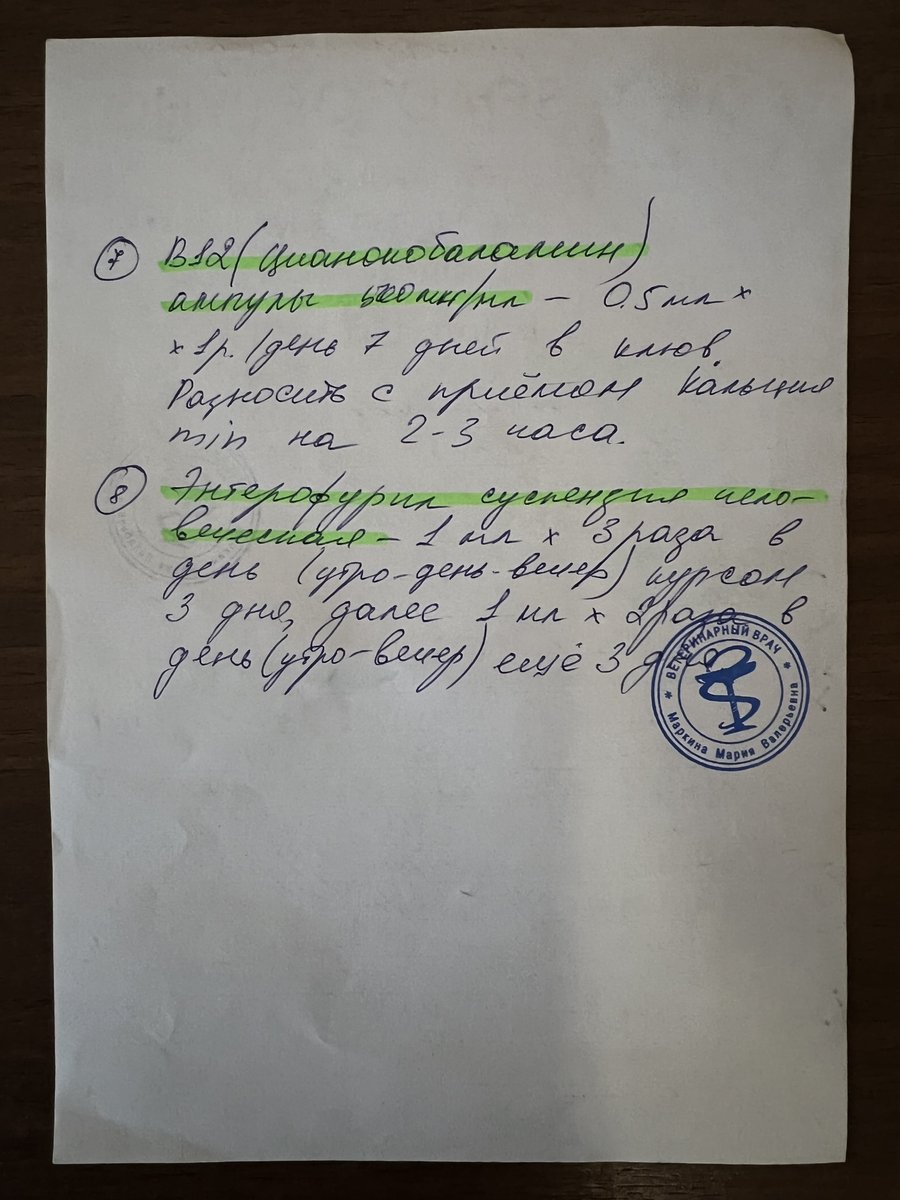 7 В12 (Цианокобаламин)
ампулы 500мкг/мл – 0.5 мл ×
× 1р./день 7 дней в клюв.
Разносить с приёмом кальция
min на 2-3 часа.
8 Энтерофурил суспензия чело-
веческая – 1 мл × 3 раза в
день (утро-день-вечер) курсом
3 дня, далее 1 мл × 2 раза в
день (утро-вечер) ещё 3 дня
* ВЕТЕРИНАРНЫЙ ВРАЧ *
Маркина Мария Валерьевна